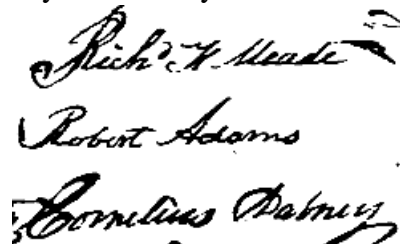 Richd K Meade
Robert Adams
Cornelius Dabney